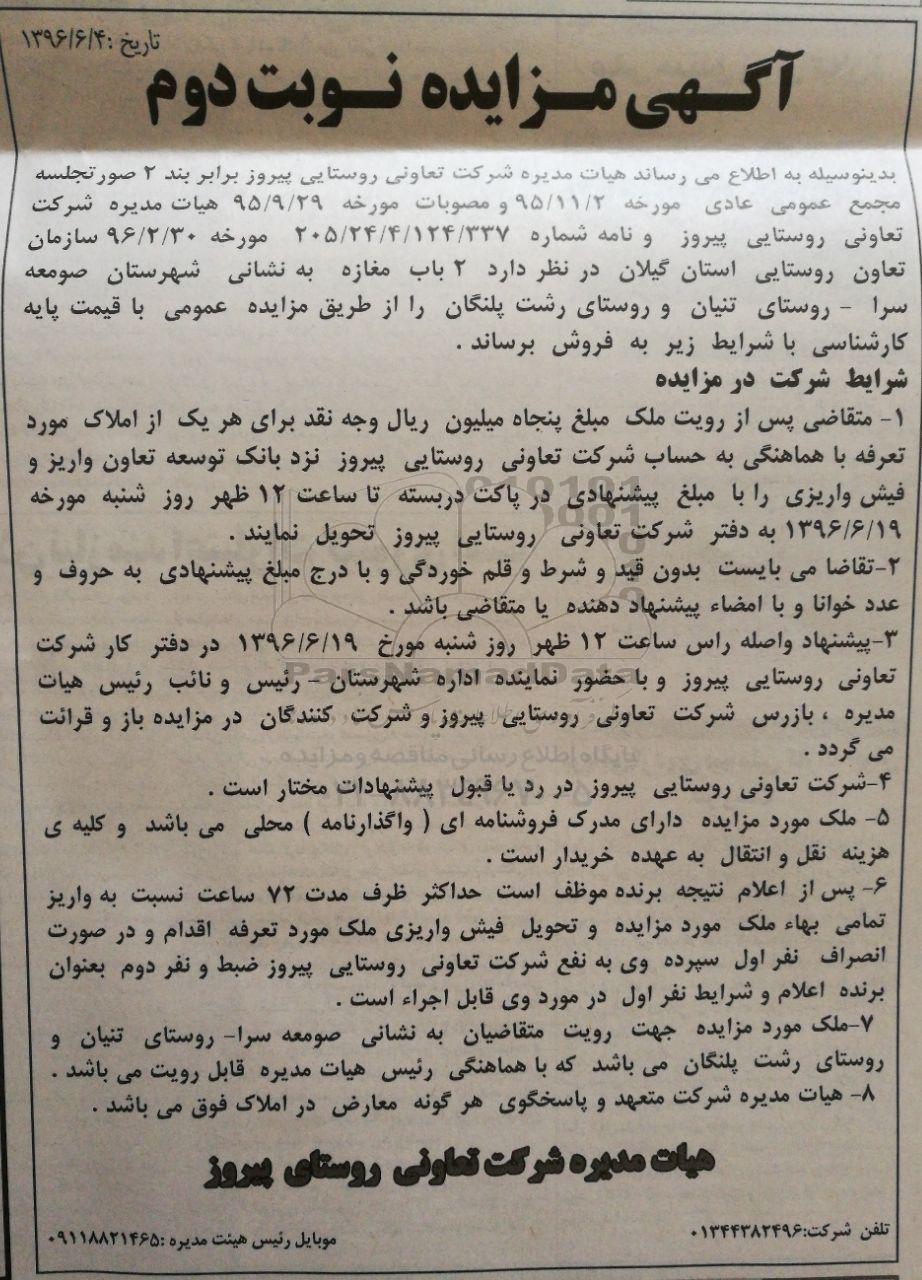 تاریخ :۱۳۹۶/۶/۴
آگهی مزایده نوبت دوم
بدینوسیله به اطلاع می رساند هیات مدیره شرکت تعاونی روستایی پیروز برابر بند ۲ صورتجلسه
مجمع عمومی عادی مورخه ۹۵/۱۱/۲ و مصوبات مورخه ۹۵/۹/۲۹ هیات مدیره شرکت
تعاونی روستایی پیروز و نامه شماره ۲۰۵/۲۴/۴/۱۲۴/۳۳۷ مورخه ۹۶/۲/۳۰ سازمان
تعاون روستایی استان گیلان در نظر دارد ۲ باب مغازه به نشانی شهرستان صومعه
سرا - روستای تنیان و روستای رشت پلنگان را از طریق مزایده عمومی با قیمت پایه
کارشناسی با شرایط زیر به فروش برساند .
شرایط شرکت در مزایده
۱- متقاضی پس از رویت ملک مبلغ پنجاه میلیون ریال وجه نقد برای هر یک از املاک مورد
تعرفه با هماهنگی به حساب شرکت تعاونی روستایی پیروز نزد بانک توسعه تعاون واریز و
فیش واریزی را با مبلغ پیشنهادی در پاکت دربسته تا ساعت ۱۲ ظهر روز شنبه مورخه
۱۳۹۶/۶/۱۹ به دفتر شرکت تعاونی روستایی پیروز تحویل نمایند .
۲-تقاضا می بایست بدون قید و شرط و قلم خوردگی و با درج مبلغ پیشنهادی به حروف و
عدد خوانا و با امضاء پیشنهاد دهنده یا متقاضی باشد .
۳-پیشنهاد واصله راس ساعت ۱۲ ظهر روز شنبه مورخ ۱۳۹۶/۶/۱۹ در دفتر کار شرکت
تعاونی روستایی پیروز و با حضور نماینده اداره شهرستان – رئیس و نائب رئیس هیات
مدیره ، بازرس شرکت تعاونی روستایی پیروز و شرکت کنندگان در مزایده باز و قرائت
می گردد .
۴-شرکت تعاونی روستایی پیروز در رد یا قبول پیشنهادات مختار است .
۵- ملک مورد مزایده دارای مدرک فروشنامه ای ( واگذارنامه ) محلی می باشد و کلیه ی
هزینه نقل و انتقال به عهده خریدار است .
۶- پس از اعلام نتیجه برنده موظف است حداکثر ظرف مدت ۷۲ ساعت نسبت به واریز
تمامی بهاء ملک مورد مزایده و تحویل فیش واریزی ملک مورد تعرفه اقدام و در صورت
انصراف نفر اول سپرده وی به نفع شرکت تعاونی روستایی پیروز ضبط و نفر دوم بعنوان
برنده اعلام و شرایط نفر اول در مورد وی قابل اجراء است .
۷-ملک مورد مزایده جهت رویت متقاضیان به نشانی صومعه سرا- روستای تنیان و
روستای رشت پلنگان می باشد که با هماهنگی رئیس هیات مدیره قابل رویت می باشد .
۸- هیات مدیره شرکت متعهد و پاسخگوی هر گونه معارض در املاک فوق می باشد .
هیات مدیره شرکت تعاونی روستای پیروز
تلفن شرکت:۰۱۳۴۴۳۸۲۴۹۶
موبایل رئیس هیئت مدیره :۰۹۱۱۸۸۲۱۴۶۵
ParsNamadData
پایگاه اطلاع رسانی مناقصه و مزایده